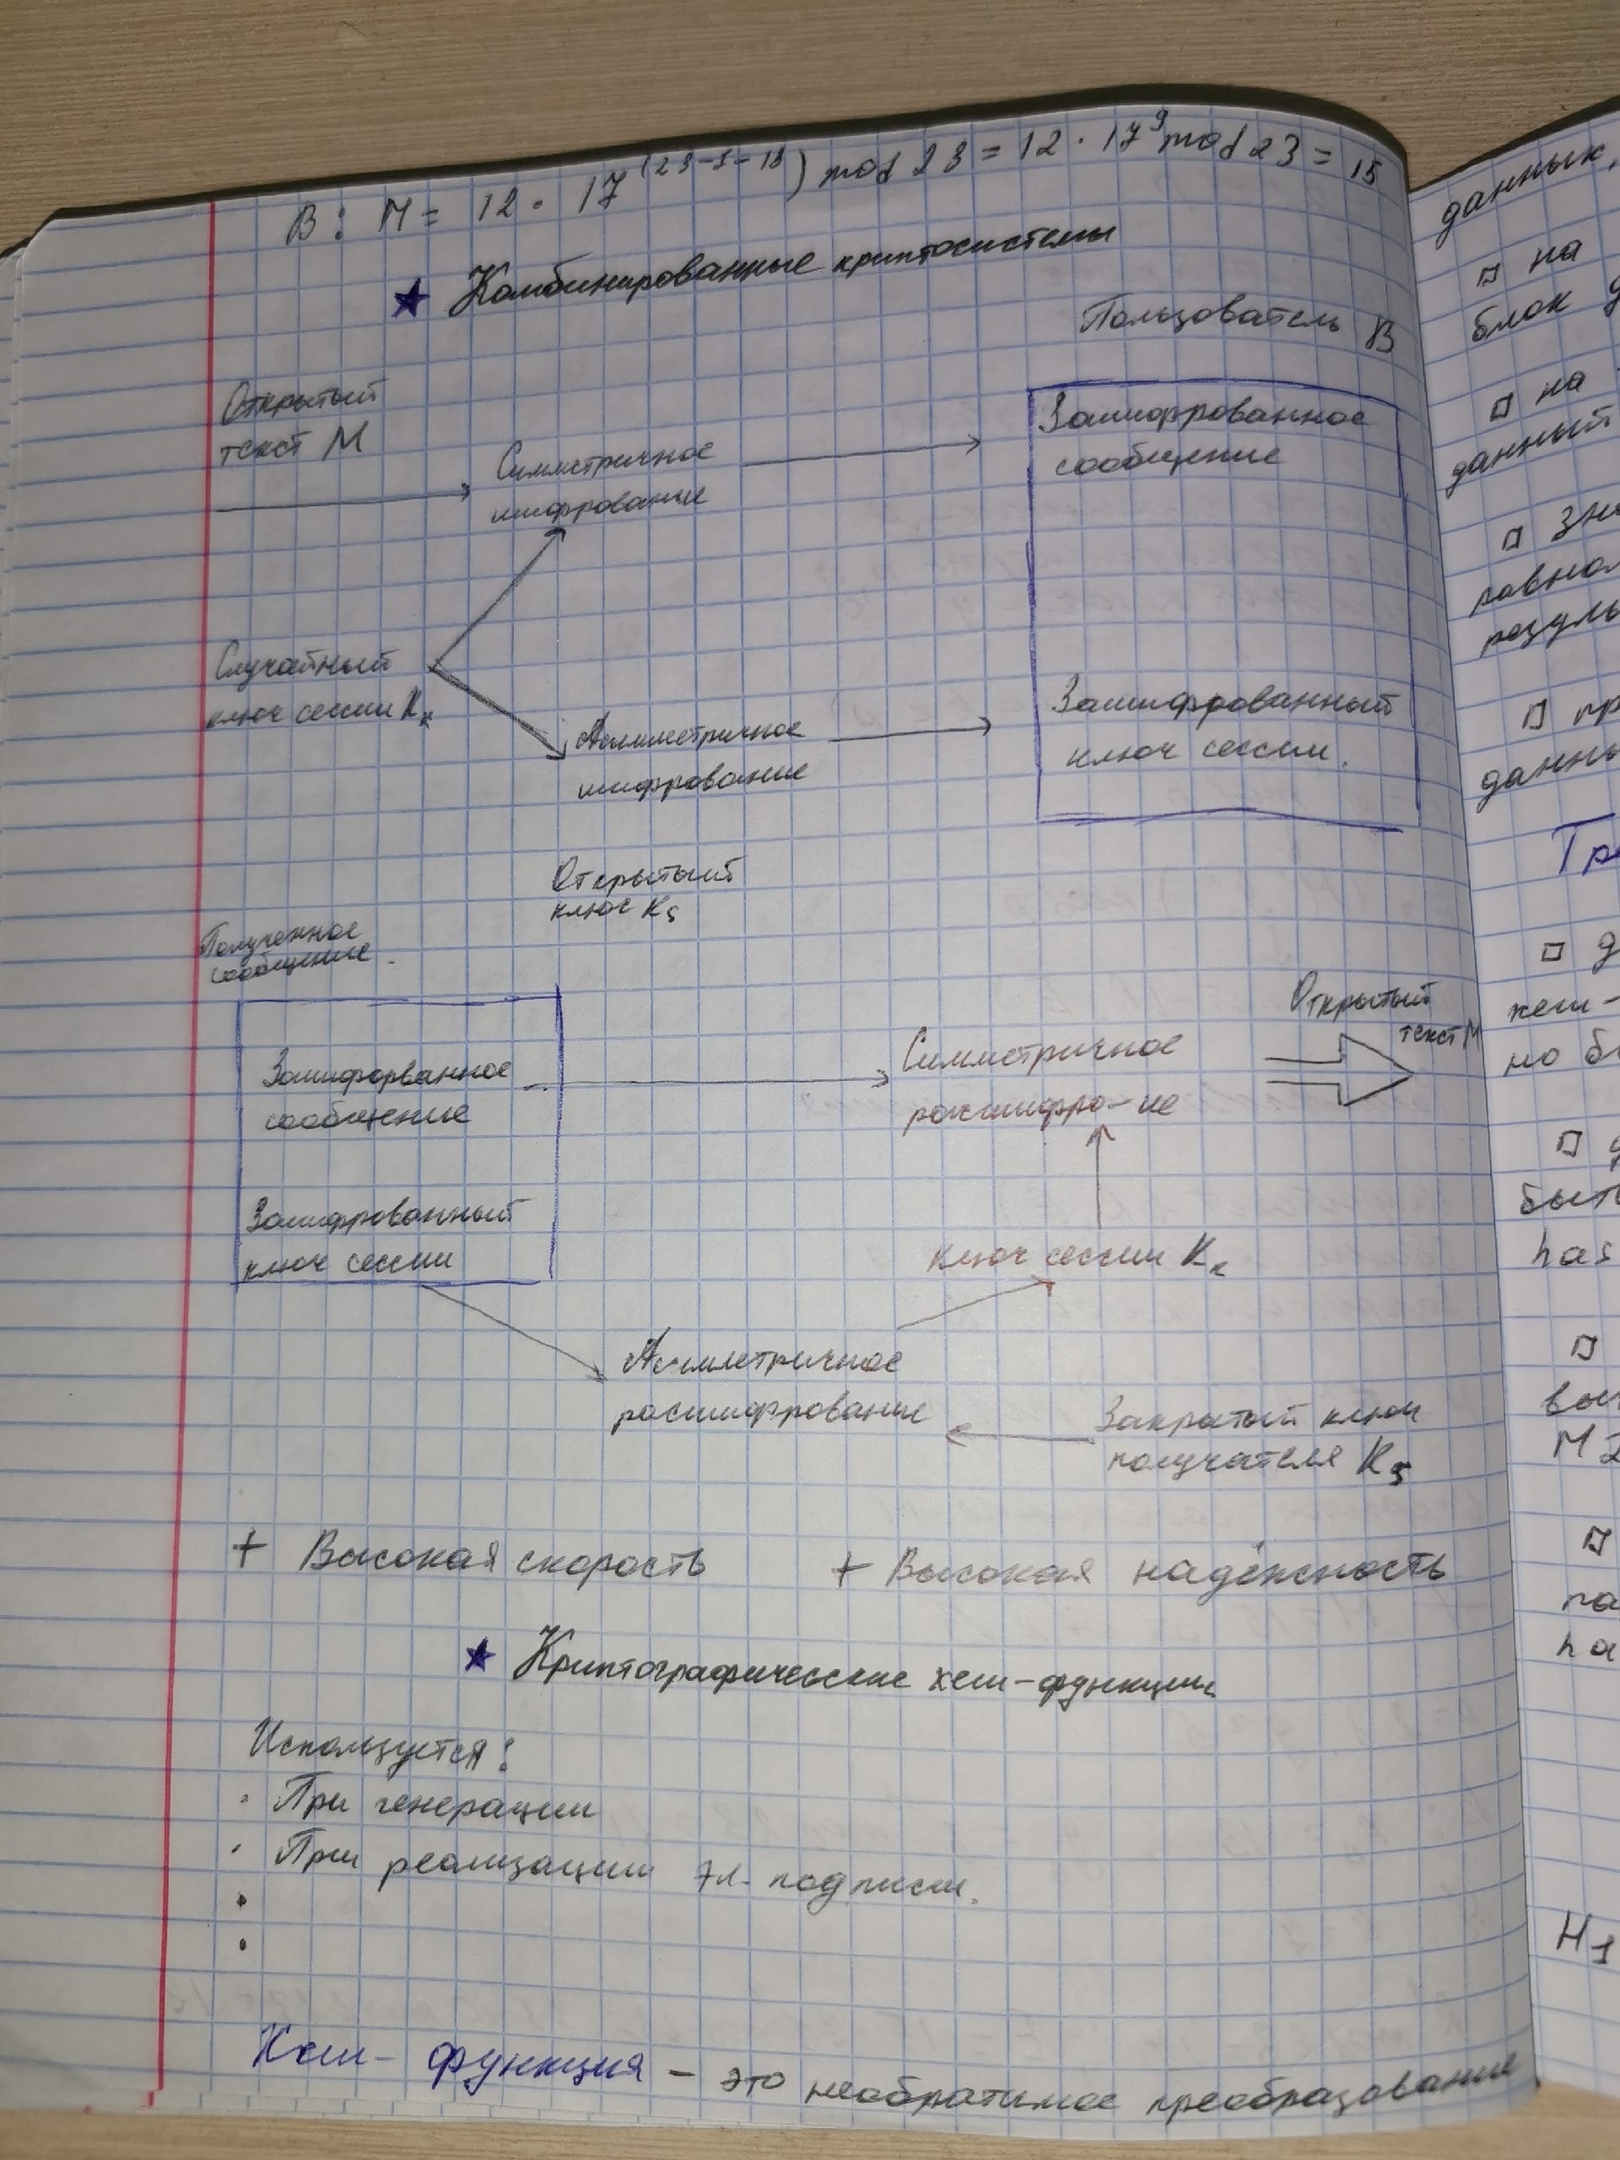 В: М = 12 · 17^(23-1-13) mod 23 = 12 · 17^9 mod 23 = 15
★ Комбинированные криптосистемы
Пользователь В
Открытый
текст М
Симметричное
шифрование
Зашифрованное
сообщение
Случайный
ключ сессии Кк
Асимметричное
шифрование
Зашифрованный
ключ сессии.
Открытый
ключ К5
Полученное
сообщение
Зашифорванное
сообщение
Симметричное
расшифро-ие
Открытый
текст М
Зашифрованный
ключ сессии
ключ сессии Кк
Асимметричное
расшифрование
Закрытый ключ
получателя К5
+ Высокая скорость
+ Высокая надёжность
★ Криптографические хеш-функции
Используется:
· При генерации
· При реализации эл. подписи.
·
·
Хеш-функция – это необратимое преобразование
данных,
▫ на
блок
▫ на
данный
▫
▫
▫
▫
▫
▫
H1